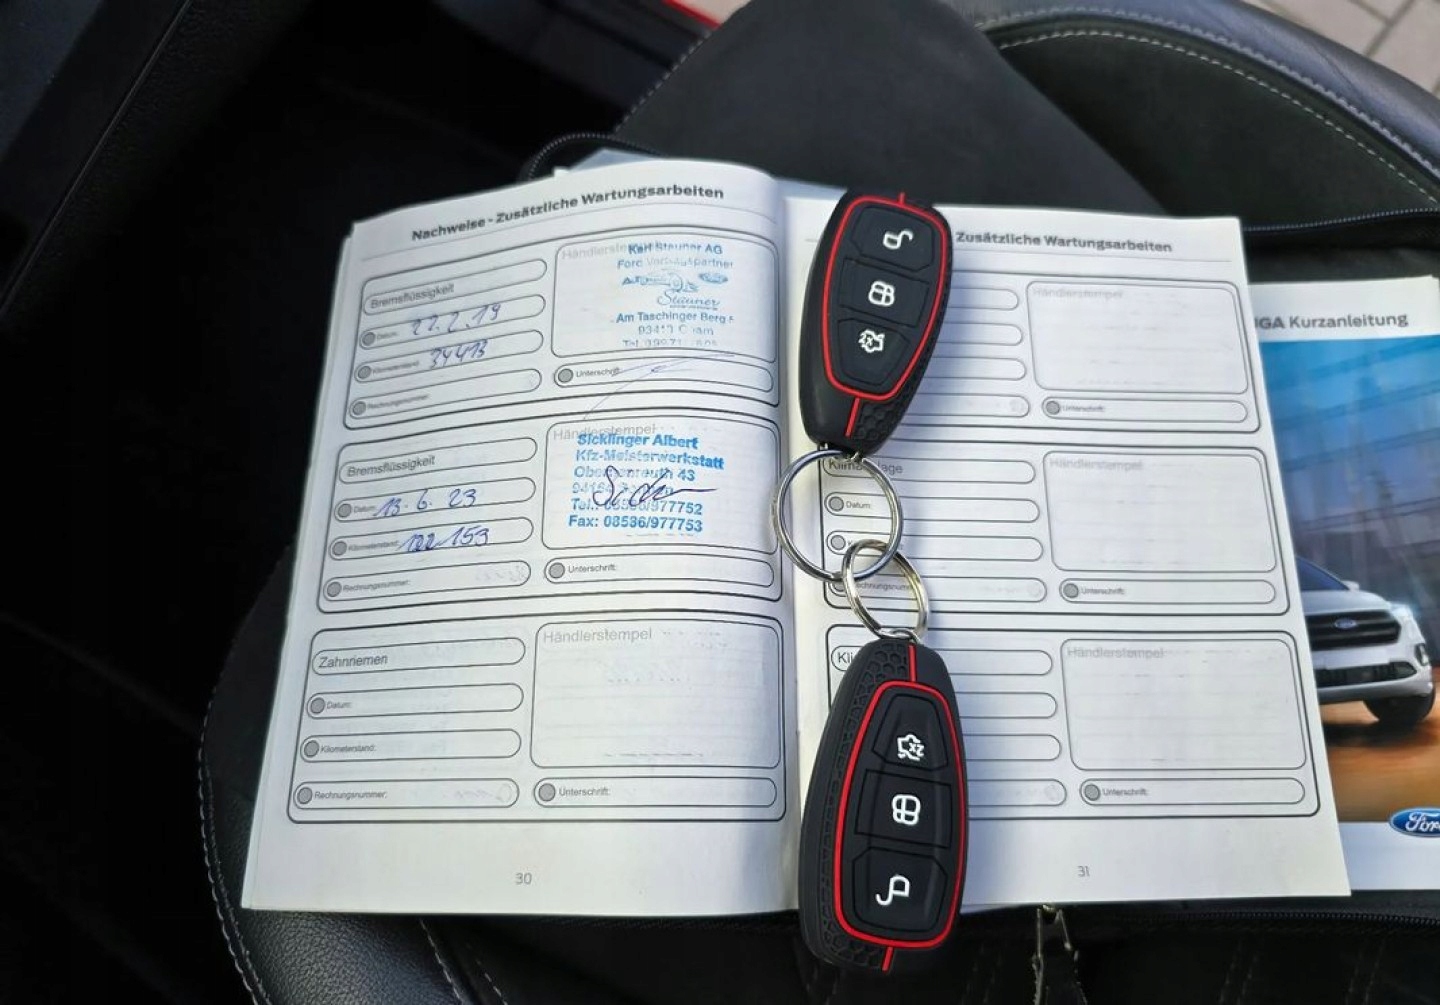 Nachweise - Zusätzliche Wartungsarbeiten
Bremsflüssigkeit
Datum: 27.2.19
Kilometerstand: 34413
Rechnungsnummer:
Händlerstempel
Karl Stauner AG
Ford Vertragspartner
Stauner
Am Taschinger Berg
93413 Cham
Unterschrift:
Bremsflüssigkeit
Datum: 13.6.23
Kilometerstand: 122 153
Rechnungsnummer:
Händlerstempel
Sicklinger Albert
Kfz-Meisterwerkstatt
43
Tel.: 08536/977752
Fax: 08536/977753
Unterschrift:
Zahnriemen
Datum:
Kilometerstand:
Rechnungsnummer:
Händlerstempel
Unterschrift:
30
Zusätzliche Wartungsarbeiten
Händlerstempel
Unterschrift:
Datum:
Händlerstempel
Unterschrift:
Händlerstempel
Unterschrift:
31
Kurzanleitung
Ford